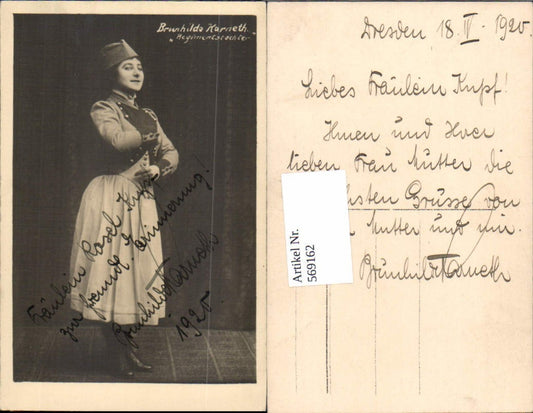 Brunhilde Harneth.
"Regimentstochter"
Fräulein Rosel Kupf
zur freundl. Erinnerung!
Brünhilde Harneth
1920.
Dresden 18. IV. 1920.
Liebes Fräulein Kupf!
Ihnen und Ihrer
lieben Frau Mutter die
sten Grüsse von
Mutter und mir.
Brünhilde Harneth
Artikel Nr.
569162